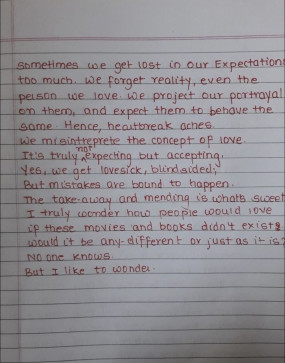 sometimes we get lost in our Expectations
too much. We forget reality, even the
person we love. We project our portrayal
on them, and expect them to behave the
same. Hence, heartbreak aches.
We misintreprete the concept of love.
It's truly not expecting but accepting.
Yes, we get lovesick, blindsided;
But mistakes are bound to happen.
The take-away and mending is whats sweet
I truly wonder how people would love
if these movies and books didn't exist?
would it be any different or just as it is?
No one knows.
But I like to wonder.